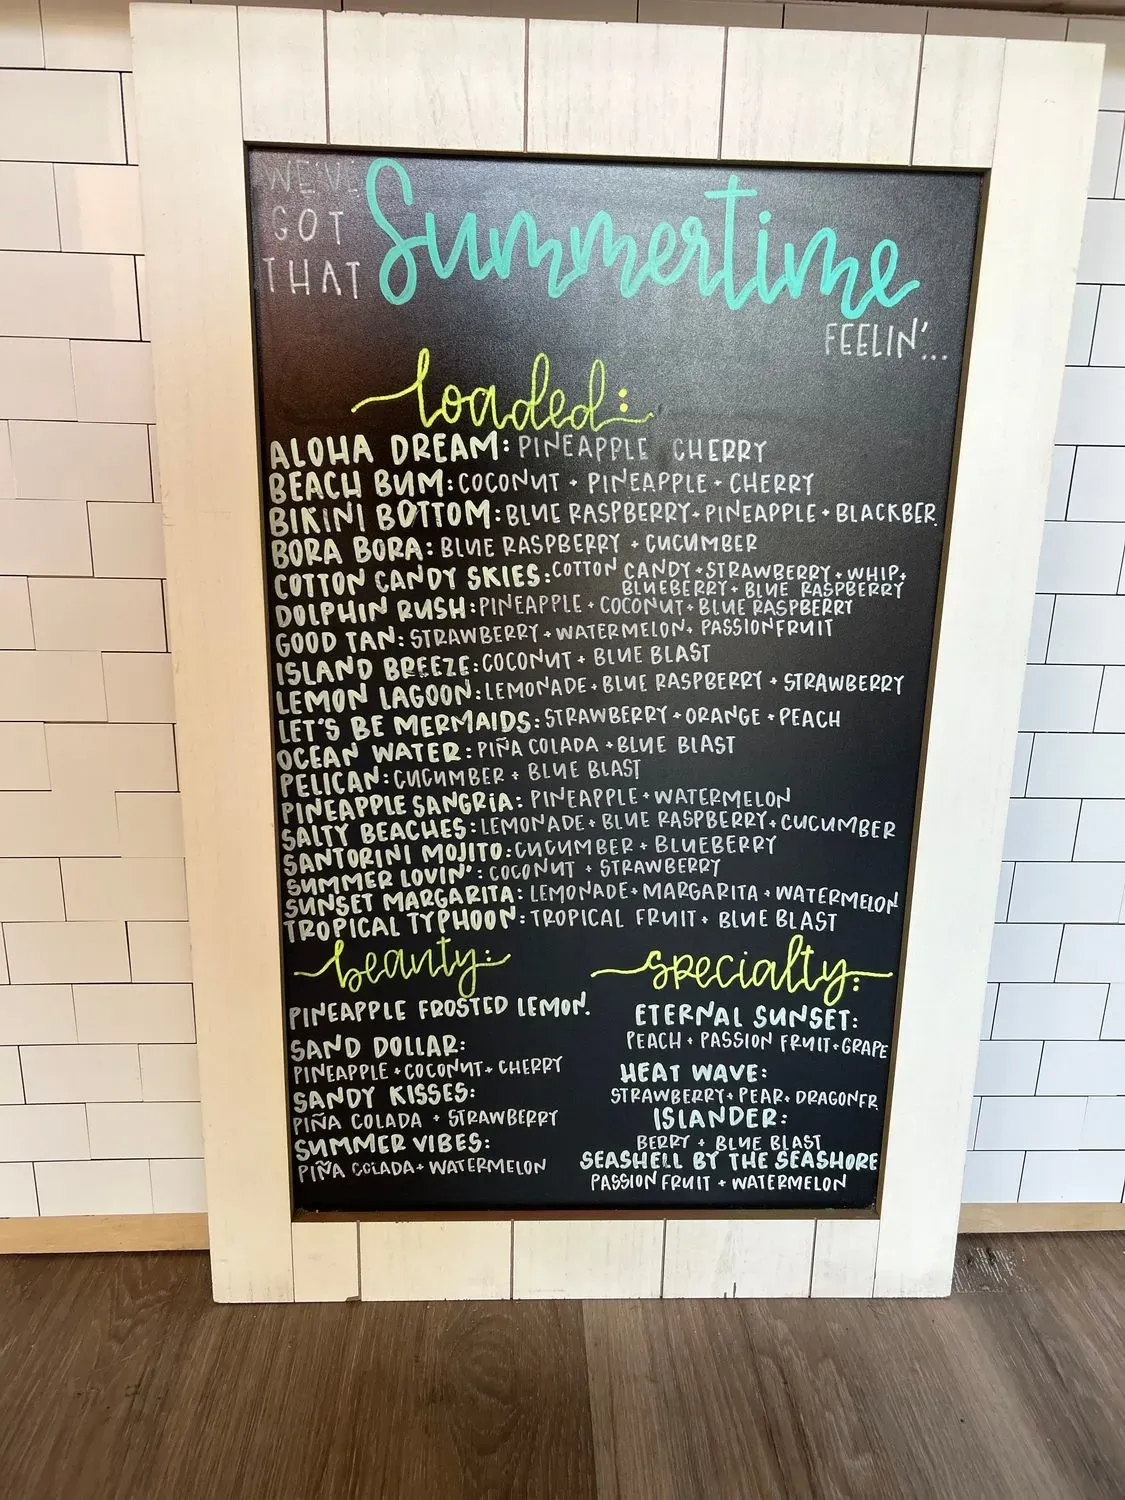 WE'VE
GOT
THAT
Summertime
FEELIN'...
loaded:
ALOHA DREAM: PINEAPPLE CHERRY
BEACH BUM: COCONUT + PINEAPPLE + CHERRY
BIKINI BOTTOM: BLUE RASPBERRY + PINEAPPLE + BLACKBER.
BORA BORA: BLUE RASPBERRY + CUCUMBER
COTTON CANDY SKIES: COTTON CANDY + STRAWBERRY + WHIP +
BLUEBERRY + BLUE RASPBERRY
DOLPHIN RUSH: PINEAPPLE + COCONUT + BLUE RASPBERRY
GOOD TAN: STRAWBERRY + WATERMELON + PASSIONFRUIT
ISLAND BREEZE: COCONUT + BLUE BLAST
LEMON LAGOON: LEMONADE + BLUE RASPBERRY + STRAWBERRY
LET'S BE MERMAIDS: STRAWBERRY + ORANGE + PEACH
OCEAN WATER: PIÑA COLADA + BLUE BLAST
PELICAN: CUCUMBER + BLUE BLAST
PINEAPPLE SANGRIA: PINEAPPLE + WATERMELON
SALTY BEACHES: LEMONADE + BLUE RASPBERRY + CUCUMBER
SANTORINI MOJITO: CUCUMBER + BLUEBERRY
SUMMER LOVIN': COCONUT + STRAWBERRY
SUNSET MARGARITA: LEMONADE + MARGARITA + WATERMELON
TROPICAL TYPHOON: TROPICAL FRUIT + BLUE BLAST
beauty:
PINEAPPLE FROSTED LEMON.
SAND DOLLAR:
PINEAPPLE + COCONUT + CHERRY
SANDY KISSES:
PIÑA COLADA + STRAWBERRY
SUMMER VIBES:
PIÑA COLADA + WATERMELON
specialty:
ETERNAL SUNSET:
PEACH + PASSION FRUIT + GRAPE
HEAT WAVE:
STRAWBERRY + PEAR + DRAGONFR.
ISLANDER:
BERRY + BLUE BLAST
SEASHELL BY THE SEASHORE
PASSION FRUIT + WATERMELON